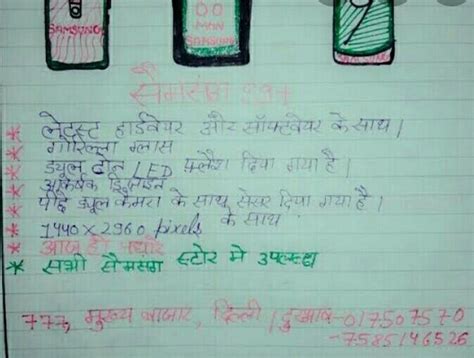 SAMSUNG
00
MAN
SAMSUNG
SAMSUNG
सैमसंग S9+
* लेटेस्ट हार्डवेयर और सॉफ्टवेयर के साथ।
* गोरिल्ला ग्लास
* ड्यूल टोन LED फ्लैश दिया गया है।
* आकर्षक डिजाइन
* पीछे ड्यूल कैमरा के साथ सेंसर दिया गया है।
* 1440×2960 pixels के साथ
* आज ही पधारे
* सभी सैमसंग स्टोर मे उपलब्ध
777, मुख्य बाजार, दिल्ली। दुरभाष-017507570
-7585146526